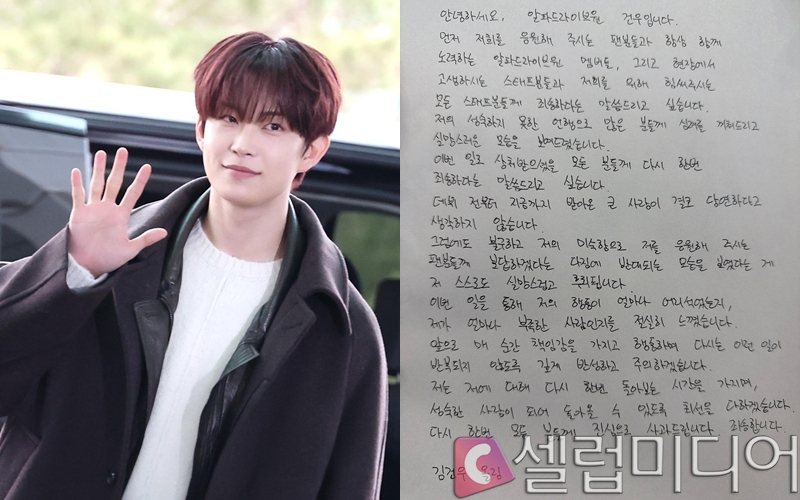 안녕하세요, 알파드라이브원 건우입니다.
먼저 저희를 응원해 주시는 팬분들과 항상 함께
노력하는 알파드라이브원 멤버들, 그리고 현장에서
고생하시는 스태프분들과 저희를 위해 힘써주시는
모든 스태프분들께 죄송하다는 말씀드리고 싶습니다.
저의 성숙하지 못한 언행으로 많은 분들께 심려를 끼쳐드리고
실망스러운 모습을 보여드렸습니다.
이번 일로 상처받으셨을 모든 분들께 다시 한번
죄송하다는 말씀드리고 싶습니다.
데뷔 전부터 지금까지 받아온 큰 사랑이 결코 당연하다고
생각하지 않습니다.
그럼에도 불구하고 저의 미숙함으로 저를 응원해 주시는
팬분들께 보답하겠다는 다짐에 반대되는 모습을 보였다는 게
저 스스로도 실망스럽고 후회됩니다
이번 일을 통해 저의 행동이 얼마나 어리석었는지,
제가 얼마나 부족한 사람인지를 절실히 느꼈습니다.
앞으로 매 순간 책임감을 가지고 행동하며 다시는 이런 일이
반복되지 않도록 깊게 반성하고 주의하겠습니다.
저는 저에 대해 다시 한번 돌아보는 시간을 가지며,
성숙한 사람이 되어 돌아올 수 있도록 최선을 다하겠습니다.
다시 한번 모든 분들께 진심으로 사과드립니다. 죄송합니다.
김건우 올림
셀럽미디어